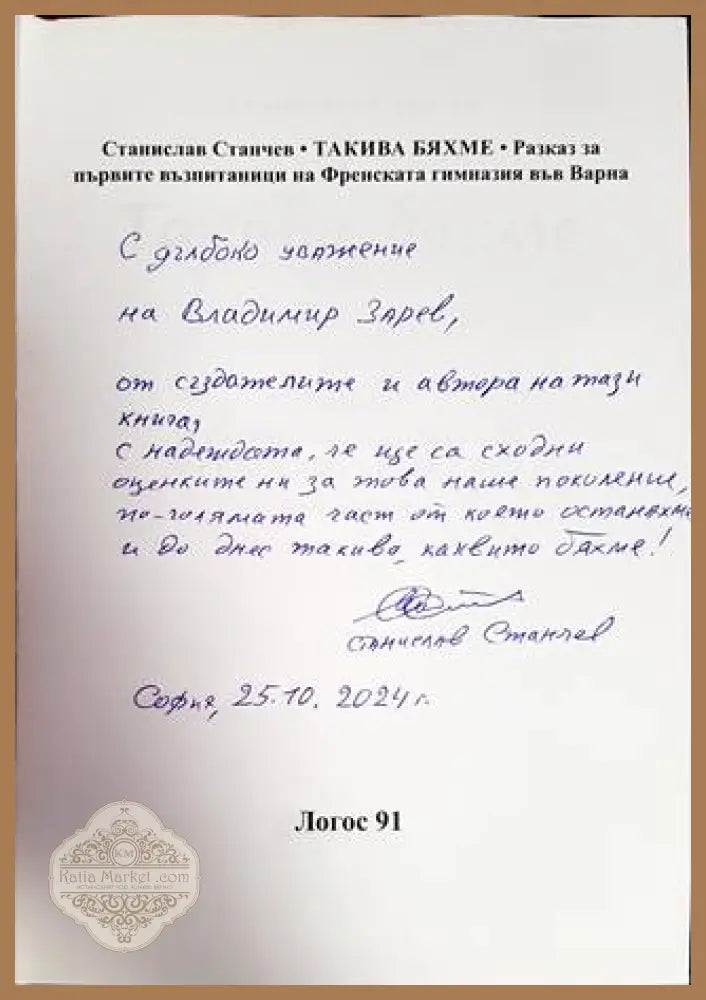 Станислав Станчев • ТАКИВА БЯХМЕ • Разказ за
първите възпитаници на Френската гимназия във Варна
С дълбоко уважение
на Владимир Зарев,
от създателите и автора на тази
книга,
с надеждата, че ще са сходни
оценките ни за това наше поколение,
по-голямата част от което останахме
и до днес такива, каквито бяхме!
Станислав Станчев
София, 25.10.2024 г.
Логос 91
KM
Katia Market .com